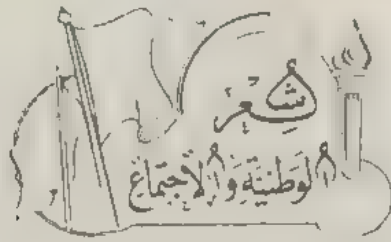 شِعْر
الوَطَنِيَّةِ وَالاِجْتِمَاعِ